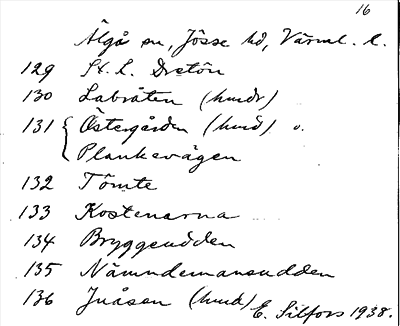 16
Älgå sn, Jösse hd, Värml. l.
129 St. L. Dretön
130 Labråten (hund)
131 { Östegården (hund) o.
Plankevägen
132 Tömte
133 Kostenarna
134 Bryggeudden
135 Nämndemansudden
136 Juåsen (hund)
E. Silfors 1938.